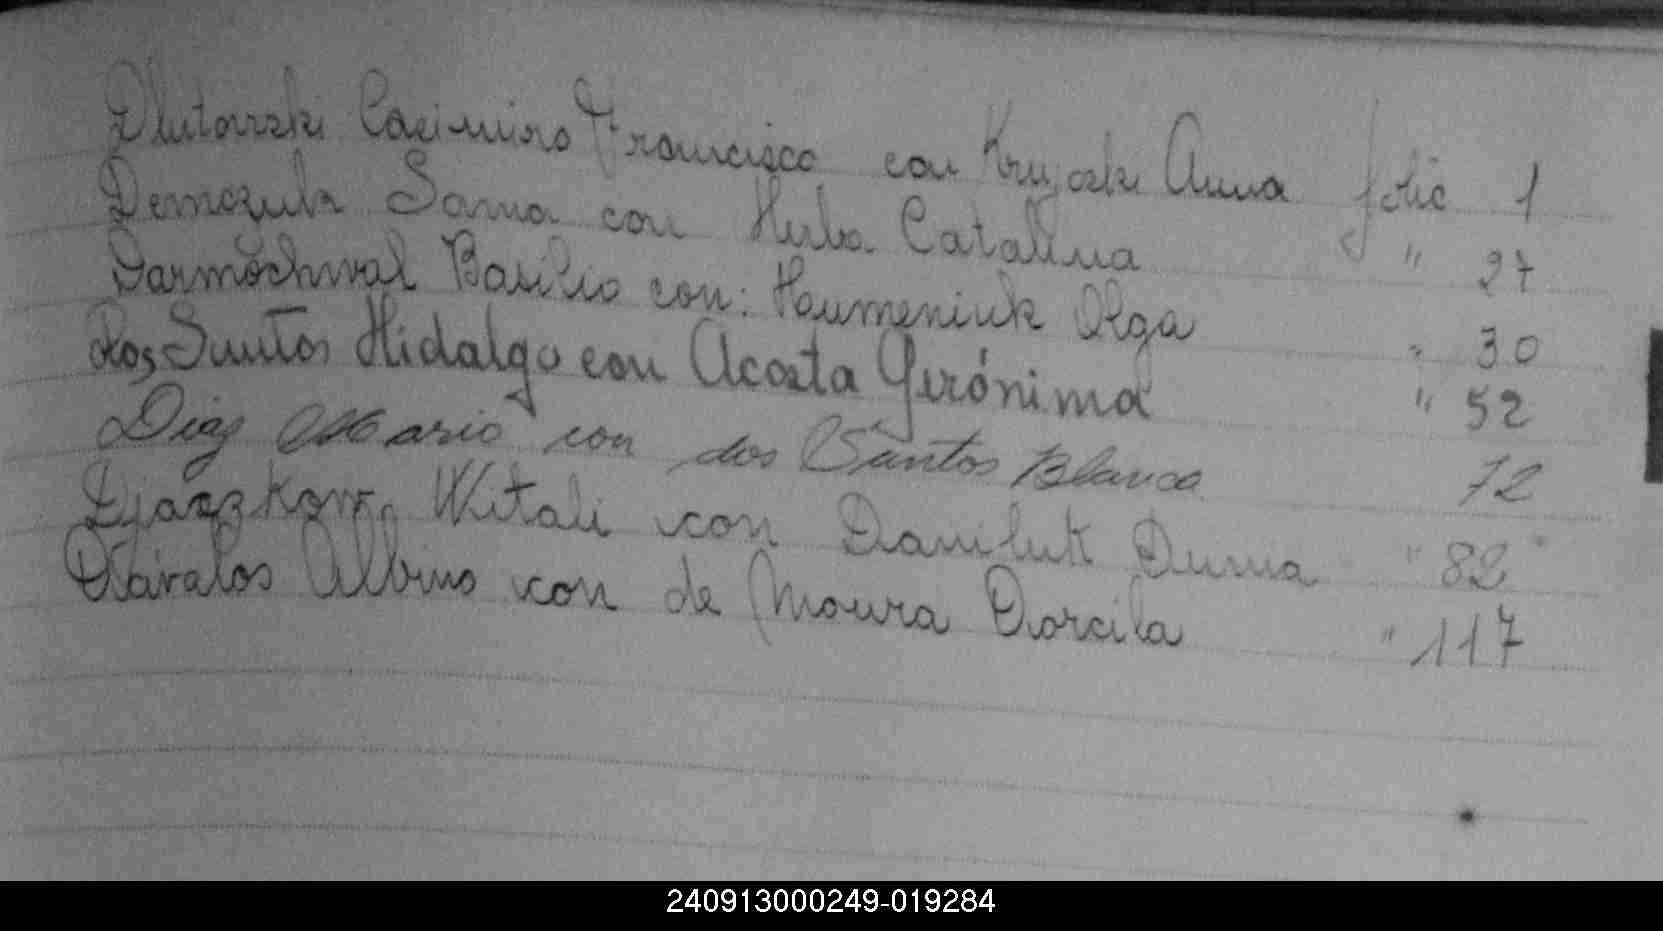 Dlutowski Casimiro Francisco con Anna folio 1
Demczuk Sawa con Hulva Catalina " 27
Darmochwal Basilio con: Haumeniuk Olga " 30
Dos Santos Hidalgo con Acosta Gerónima " 52
Diaz Mario con dos Santos Blanca 72
Witali con Daniluk Dunia " 82
Dávalos Albino con de Moura Dorcila " 117
240913000249-019284